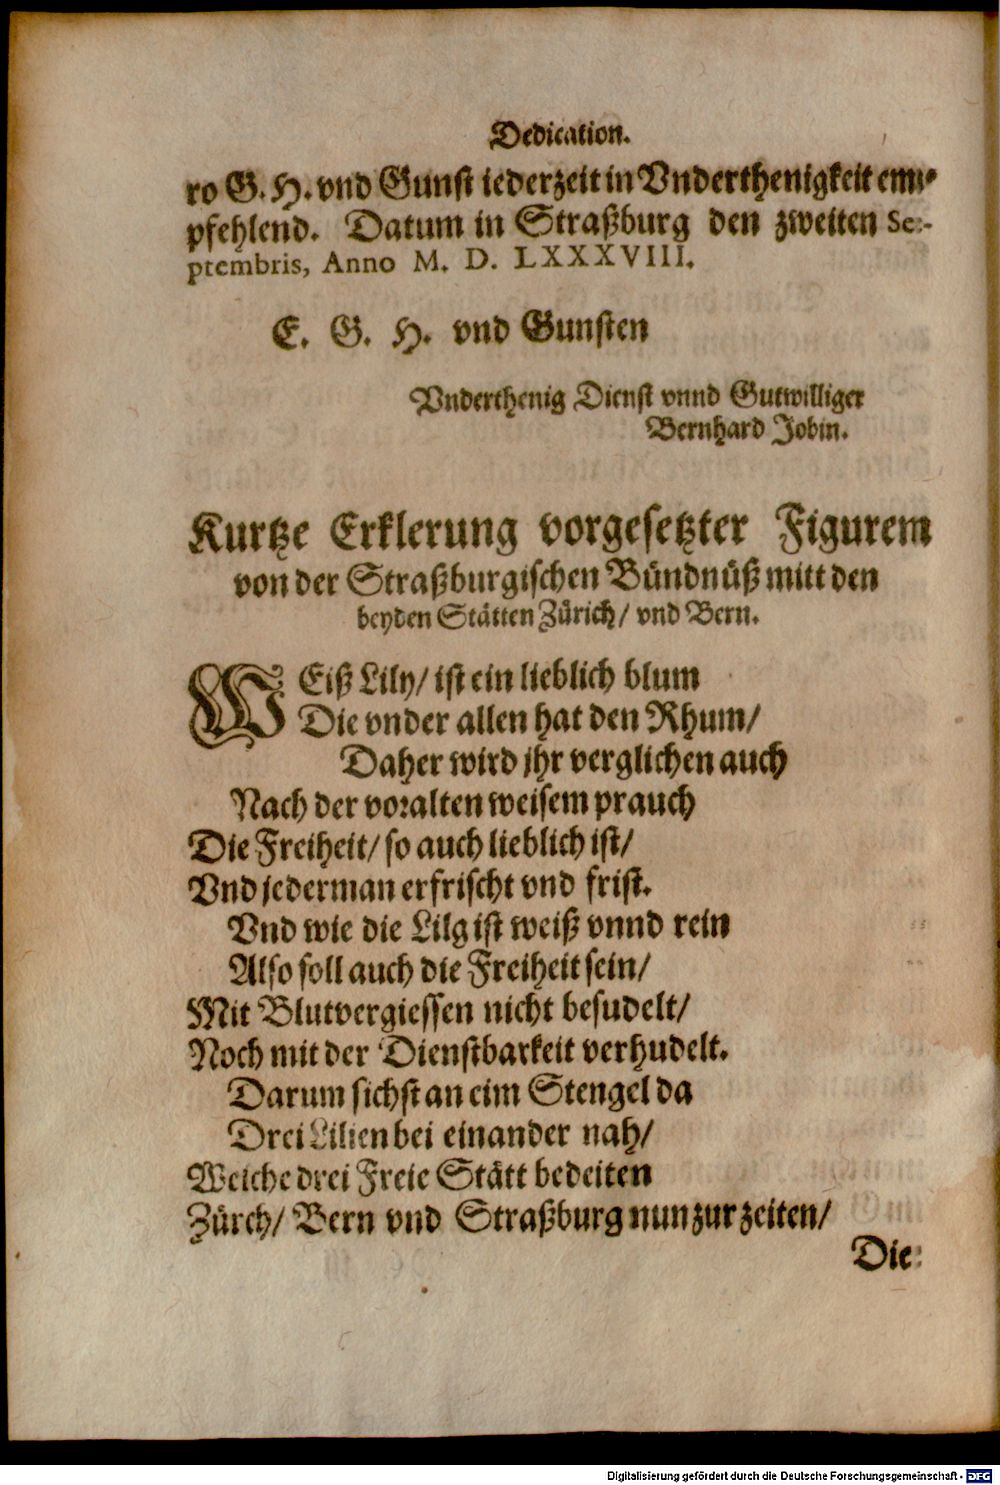 Dedication.
ro G. H. vnd Gunst iederzeit in Vnderthenigkeit em-
pfehlend. Datum in Straßburg den zweiten Se-
ptembris, Anno M. D. LXXXVIII.
E. G. H. vnd Gunsten
Vnderthenig Dienst vnnd Gutwilliger
Bernhard Jobin.
Kurtze Erklerung vorgesetzter Figuren
von der Straßburgischen Bündnüß mitt den
beyden Stätten Zürich/ vnd Bern.
WEiß Lily/ ist ein lieblich blum
Die vnder allen hat den Rhum/
Daher wird jhr verglichen auch
Nach der voralten weisem prauch
Die Freiheit/ so auch lieblich ist/
Vnd jederman erfrischt vnd frist.
Vnd wie die Lilg ist weiß vnnd rein
Also soll auch die Freiheit sein/
Mit Blutvergiessen nicht besudelt/
Noch mit der Dienstbarkeit verhudelt.
Darum sichst an eim Stengel da
Drei Lilien bei einander nah/
Welche drei Freie Stätt bedeiten
Zürch/ Bern vnd Straßburg nun zur zeiten/
Die
Digitalisierung gefördert durch die Deutsche Forschungsgemeinschaft - DFG